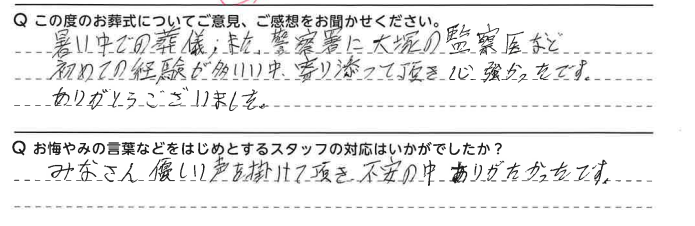 Q この度のお葬式についてご意見、ご感想をお聞かせください。
暑い中での葬儀、また、警察署に大塚の監察医など
初めての経験が多いい中、寄り添って頂き心強かったです。
ありがとうございました。
Q お悔やみの言葉などをはじめとするスタッフの対応はいかがでしたか？
みなさん優しい声を掛けて頂き、不安の中ありがたかったです。